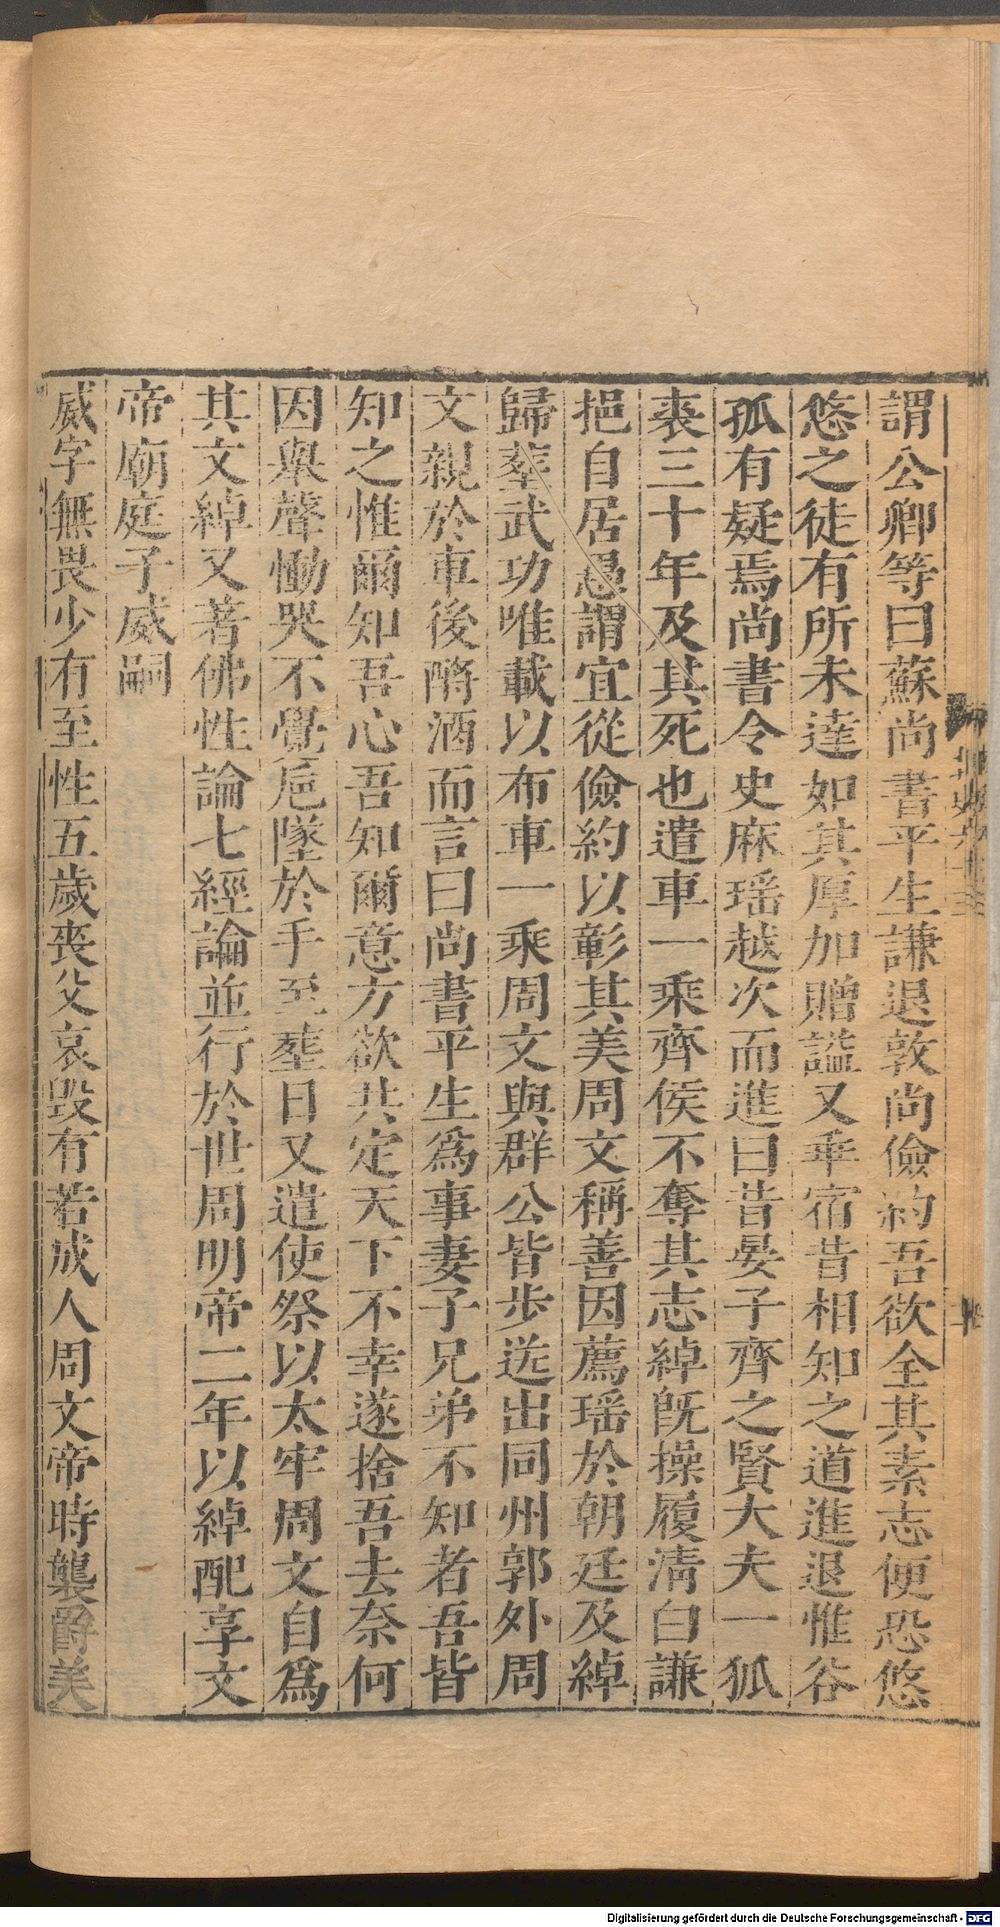 謂公卿等曰蘇尚書平生謙退敦尚儉約吾欲全其素志便恐悠
悠之徒有所未達如其厚加贈謚又乖宿昔相知之道進退惟谷
孤有疑焉尚書令史麻瑶越次而進曰昔晏子齊之賢大夫一狐
裘三十年及其死也遣車一乘齊侯不奪其志綽旣操履清白謙
挹自居愚謂宜從儉約以彰其美周文稱善因薦瑶於朝廷及綽
歸葬武功唯載以布車一乘周文與群公皆步送出同州郭外周
文親於車後酹酒而言曰尚書平生爲事妻子兄弟不知者吾皆
知之惟爾知吾心吾知爾意方欲共定天下不幸遂捨吾去奈何
因舉聲慟哭不覺巵墜於手至葬日又遣使祭以太牢周文自爲
其文綽又著佛性論七經論並行於世周明帝二年以綽配享文
帝廟庭子威嗣
威字無畏少有至性五歲喪父哀毁有若成人周文帝時襲爵美
Digitalisierung gefördert durch die Deutsche Forschungsgemeinschaft - DFG